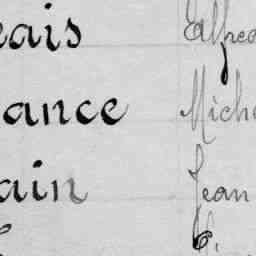 eais Alfred
ance Miche
ain Jean